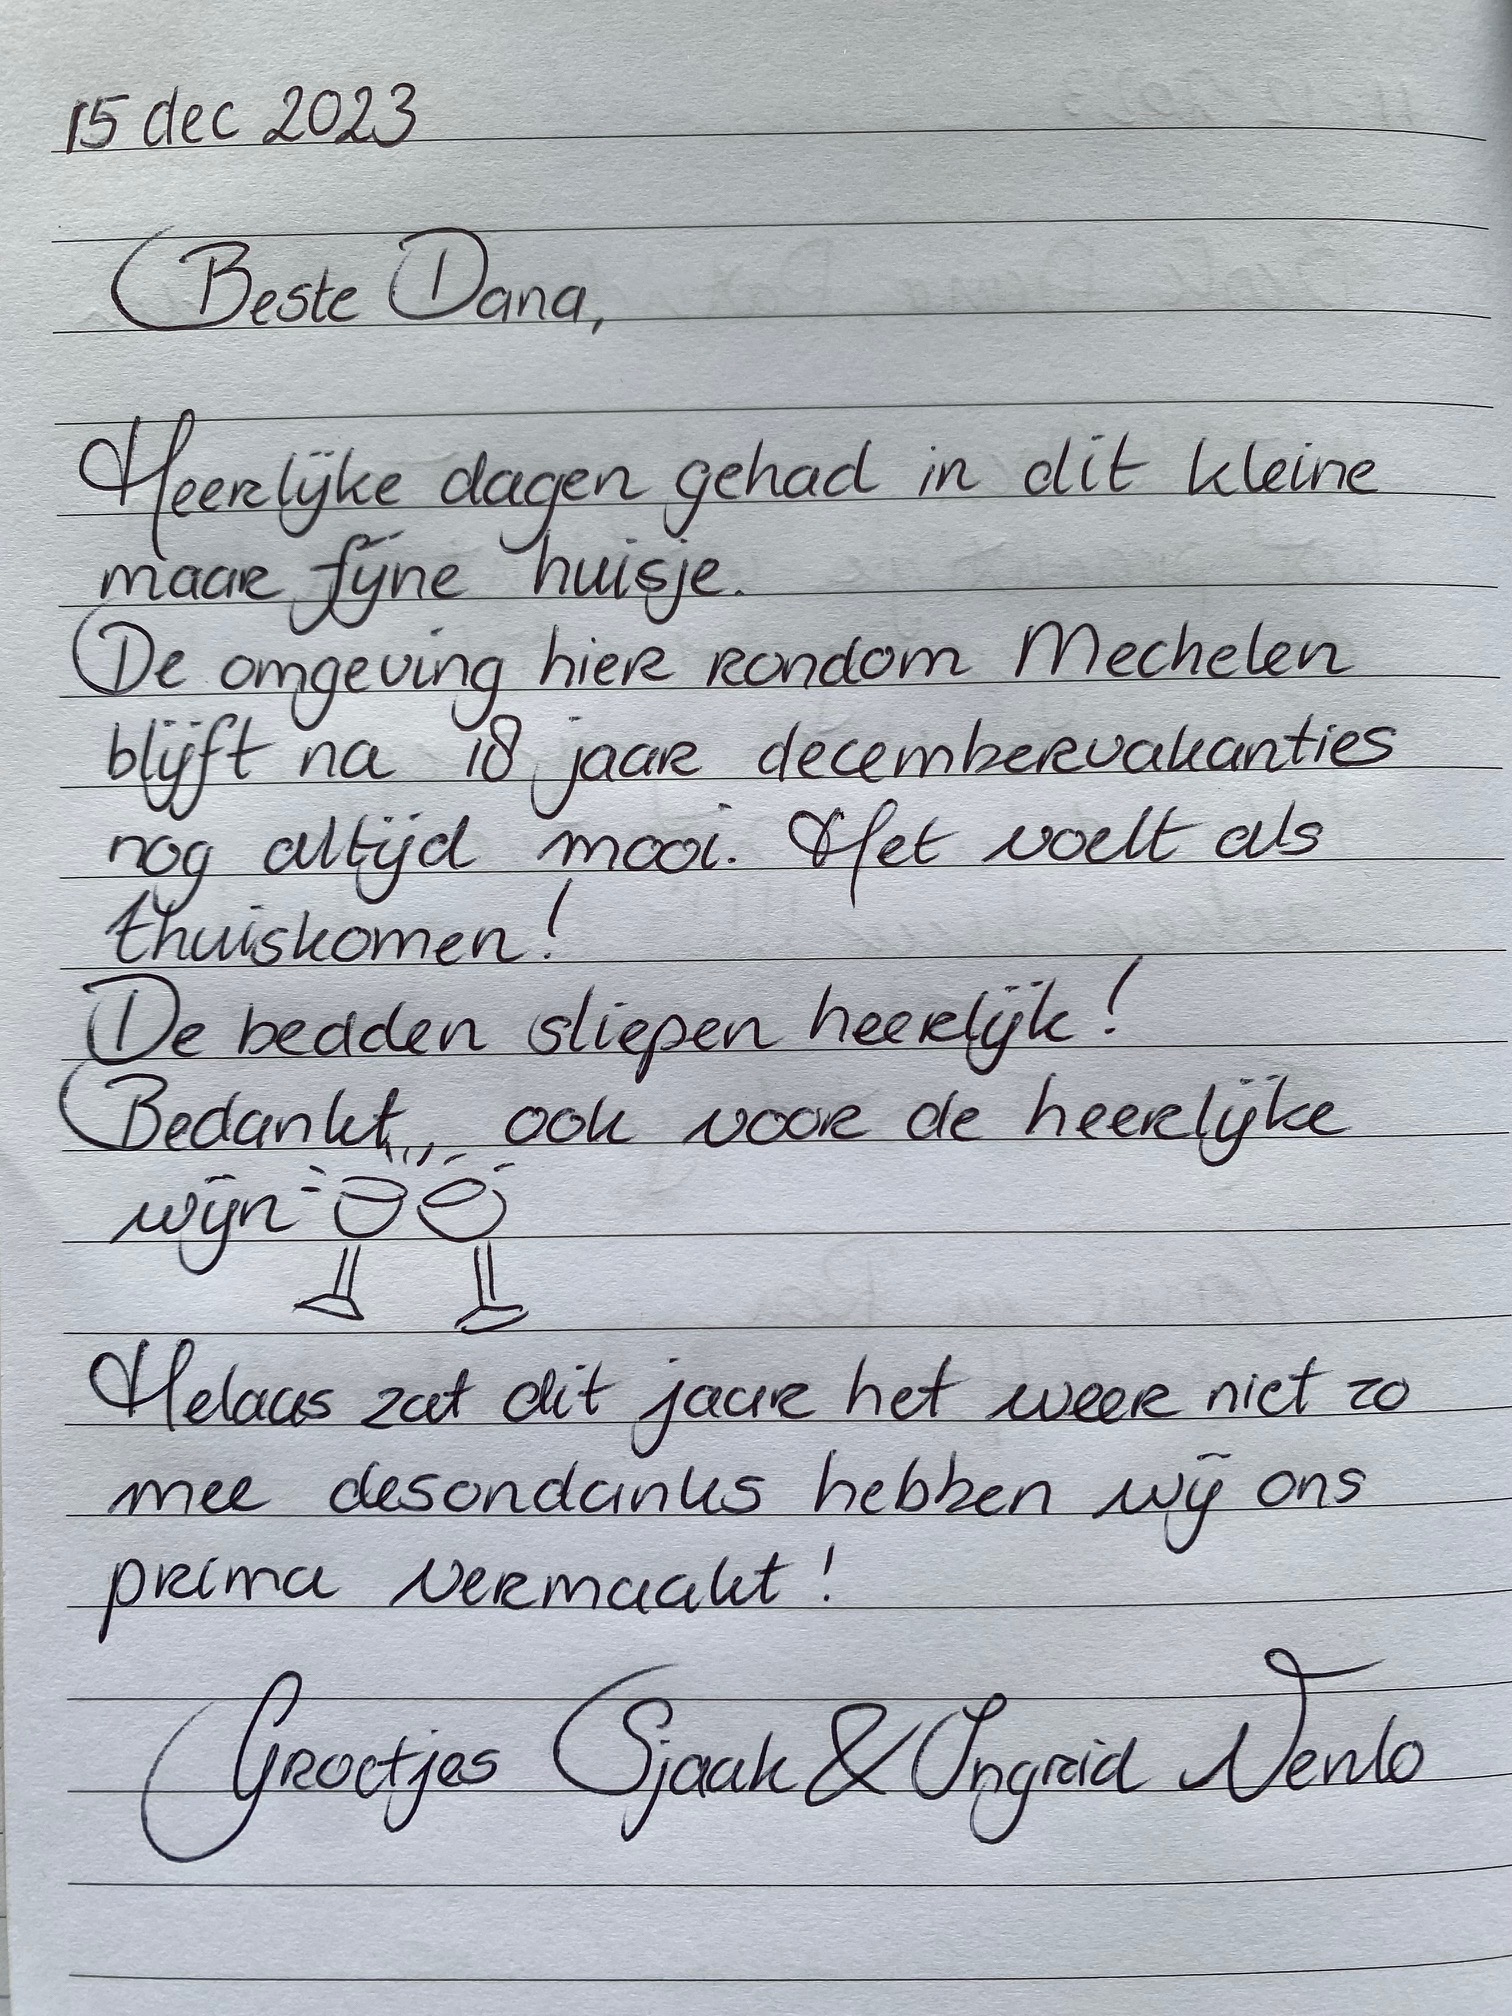 15 dec 2023
Beste Dana,
Heerlijke dagen gehad in dit kleine
maar fijne huisje.
De omgeving hier rondom Mechelen
blijft na 18 jaar decembervakanties
nog altijd mooi. Het voelt als
thuiskomen!
De bedden sliepen heerlijk!
Bedankt, ook voor de heerlijke
wijn
Helaas zat dit jaar het weer niet zo
mee desondanks hebben wij ons
prima vermaakt!
Groetjes Sjaak & Ingrid Venlo